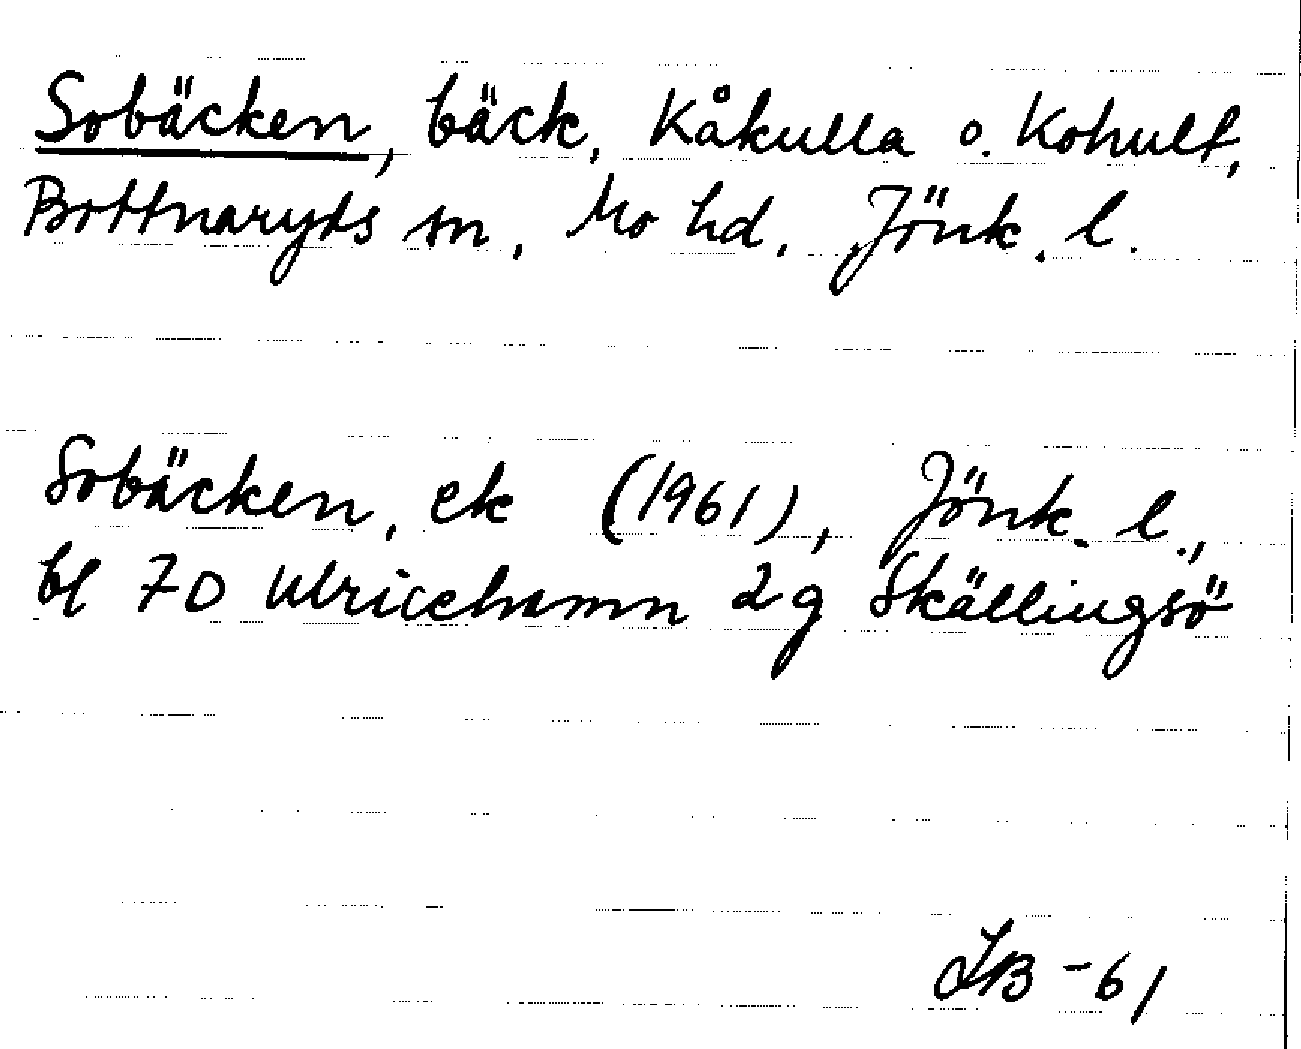 Sobäcken, bäck, Kåkulla o. Kohult,
Bottnaryds sn, Mo hd, Jönk. l.
Sobäcken, ek (1961), Jönk. l.,
bl 7D Ulricehamn 2g Skällingsö
IB -61